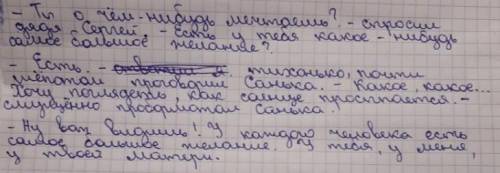 - Ты о чём-нибудь мечтаешь? - спросил
дядя Сергей. - Есть у тебя какое-нибудь
самое большое желание?
- Есть. - тихонько, почти
шепотом проговорил Санька. - Какое, какое...
Хочу поглядеть, как солнце просыпается. -
смущённо пробормотал Санька.
- Ну вот видишь! У каждого человека есть
самое большое желание. У тебя, у меня,
у твоей матери.